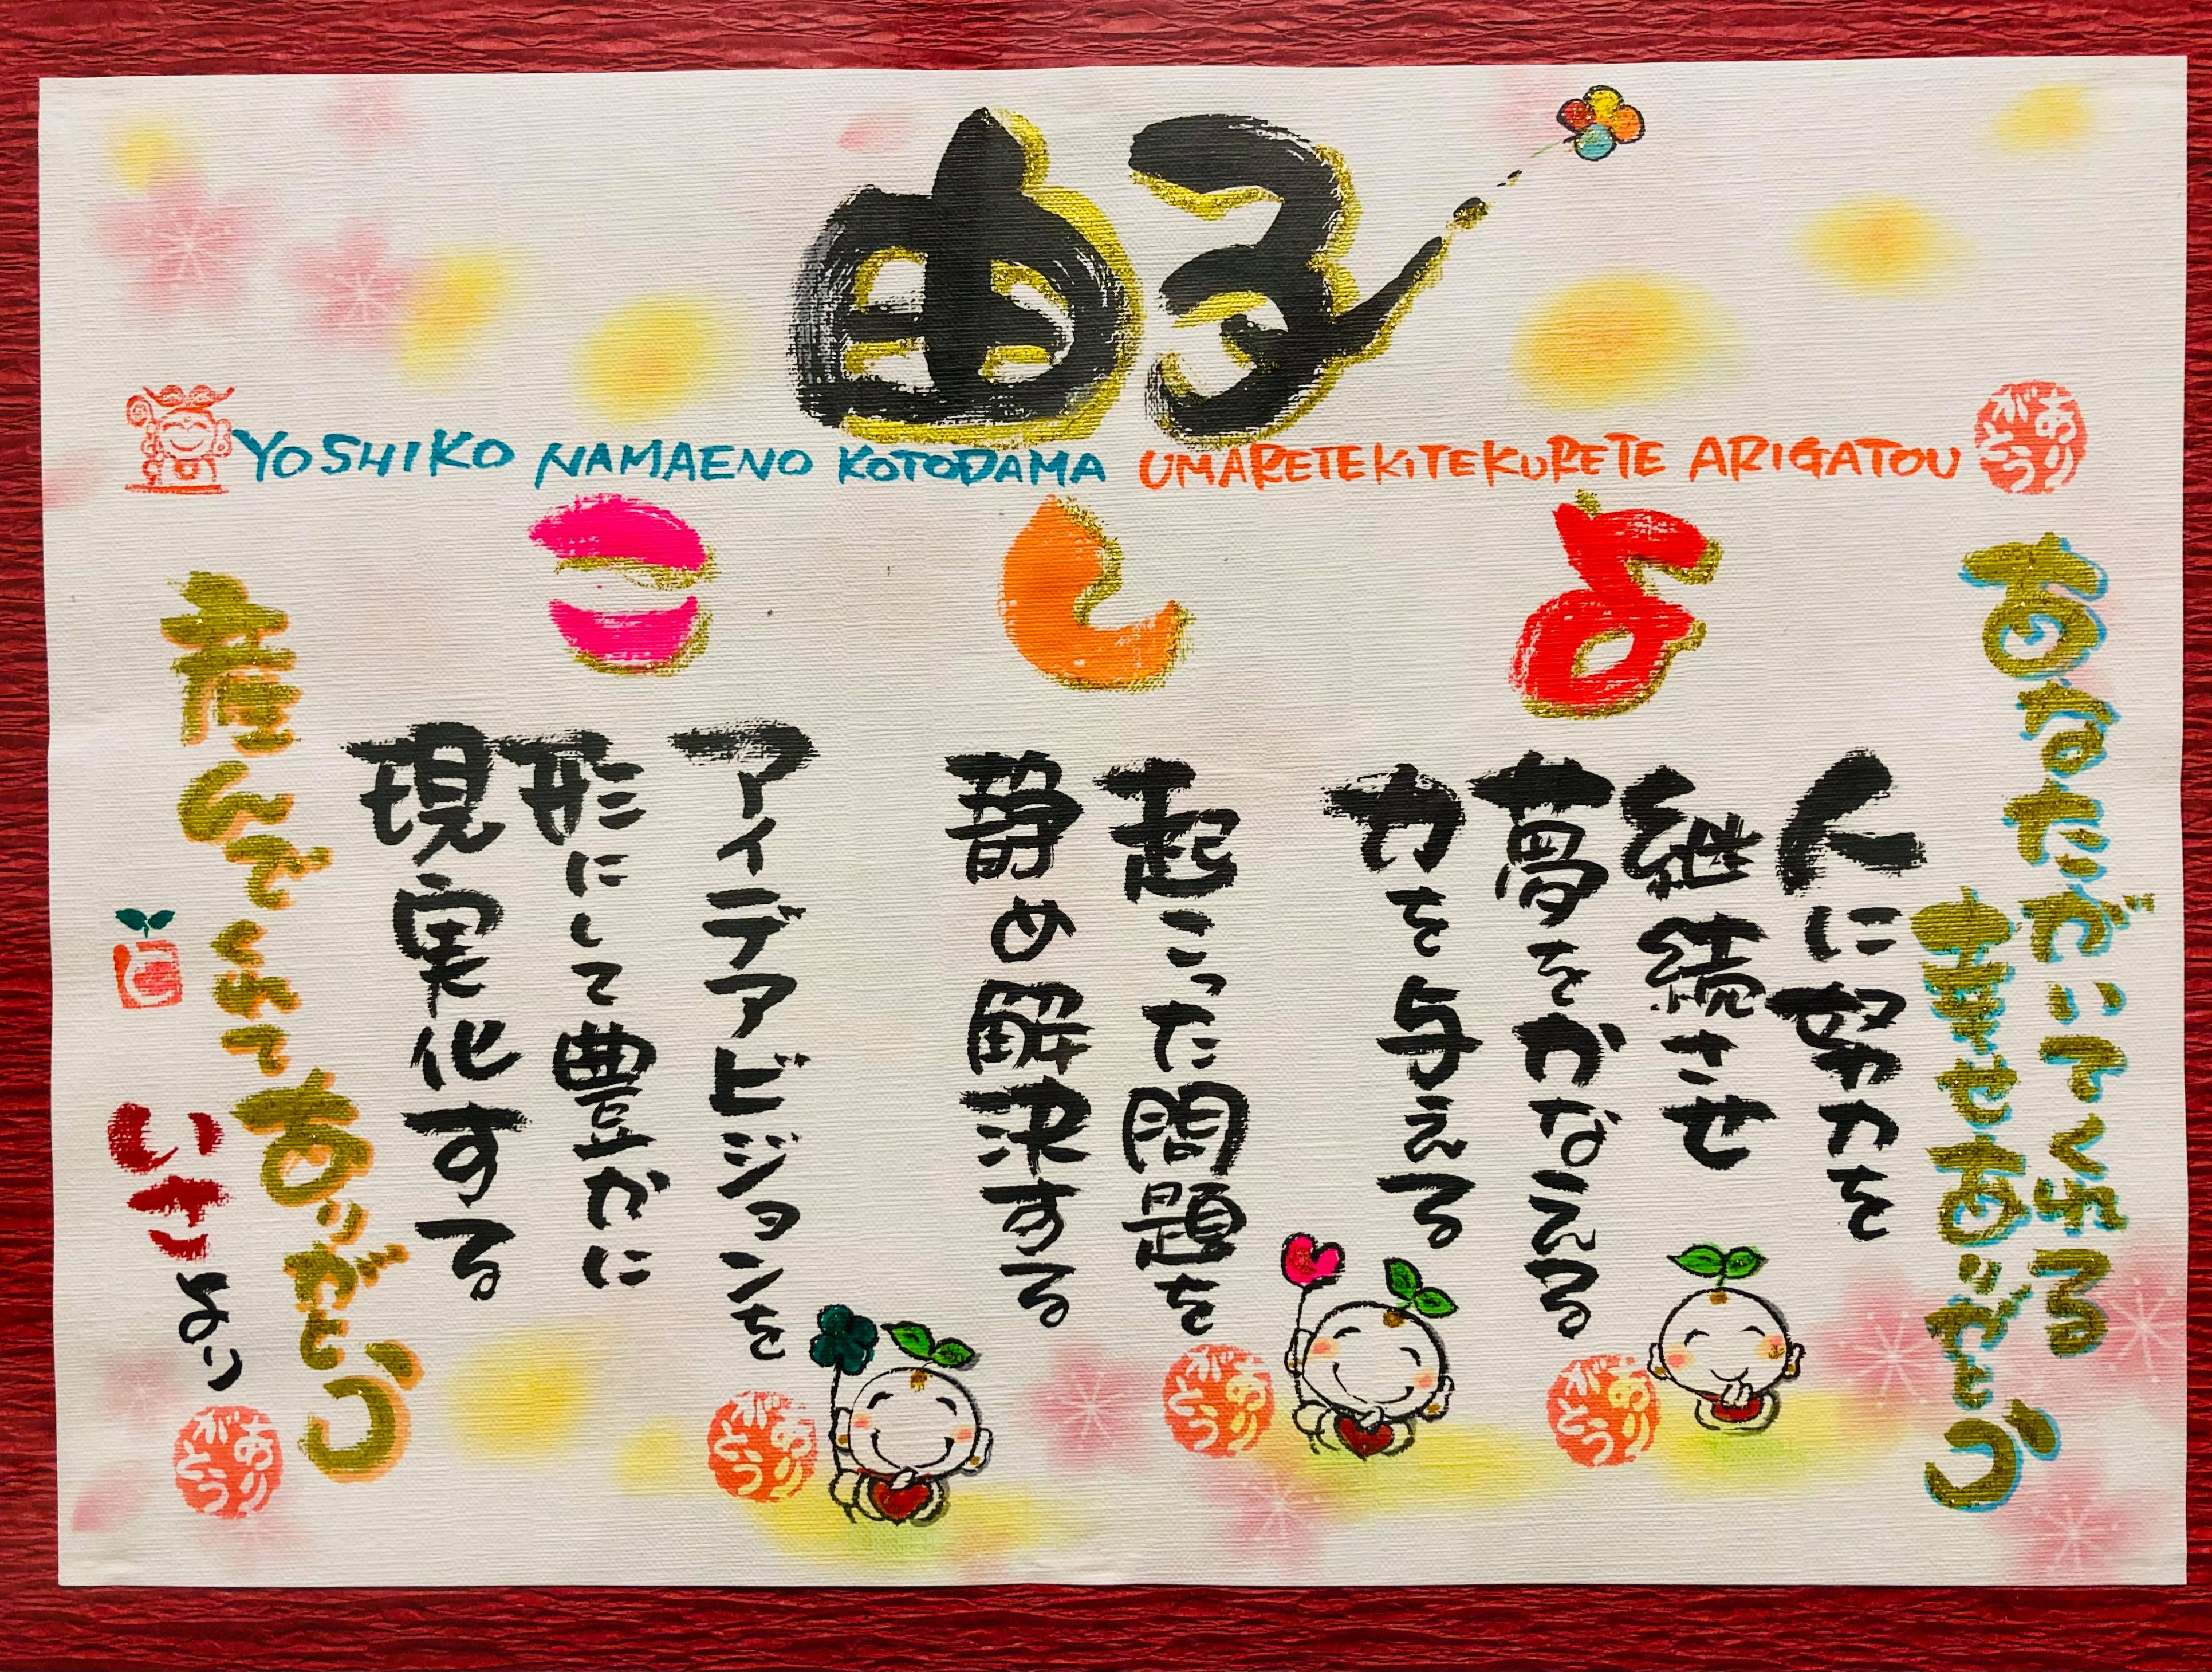 由子
YOSHIKO NAMAENO KOTODAMA UMARETEKITEKURETE ARIGATOU
ありがとう
あなたがいてくれる
幸せありがとう
よ
人に努力を
継続させ
夢をかなえる
力を与える
ありがとう
し
起こった問題を
静め解決する
ありがとう
こ
アイデアビジョンを
形にして豊かに
現実化する
ありがとう
産んでくれてありがとう
いさより
ありがとう